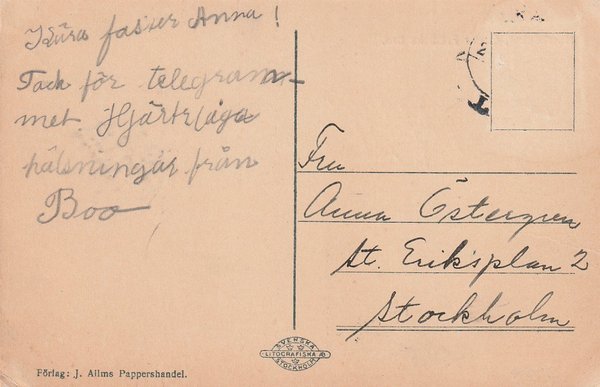 Kära faster Anna!
Tack för telegram-
met. Hjärtliga
hälsningar från
Boo
Fru
Anna Östergren
St. Eriksplan 2
Stockholm
SVENSKA
LITOGRAFISKA AB
STOCKHOLM
Förlag: J. Allms Pappershandel.